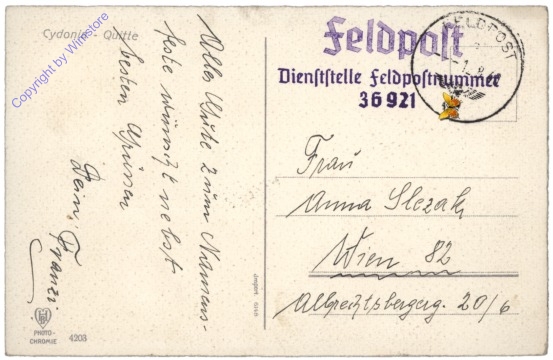 Cydonia Quitte
Copyright by Winstore
Alles Gute zum Namens-
feste wünscht nebst
besten Grüssen
Dein Franzi.
PHOTO-
CHROMIE 4203
Feldpost
Dienststelle Feldpostnummer
36 921
FELDPOST
Frau
Anna Slezak
Wien 82
Albrechtsbergerg. 20/6